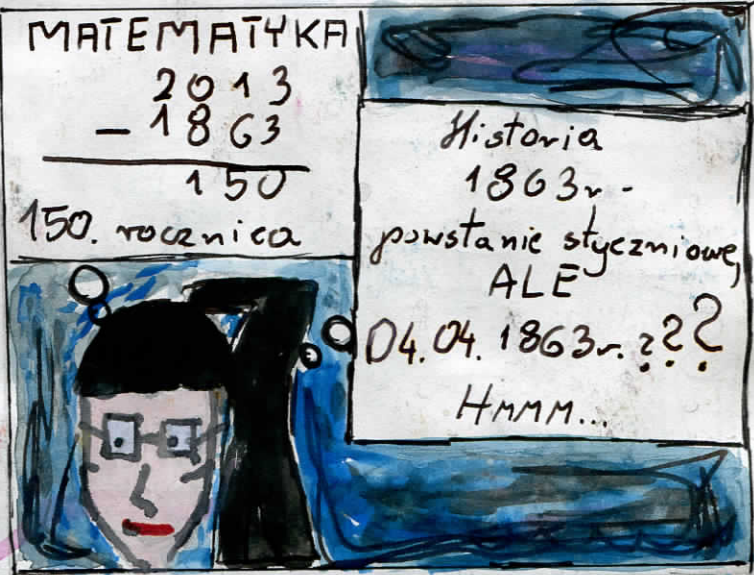 MATEMATYKA
2013
- 1863
150
150. rocznica
Historia
1863r -
powstanie styczniowe,
ALE
04.04.1863r. ???
HMMM...